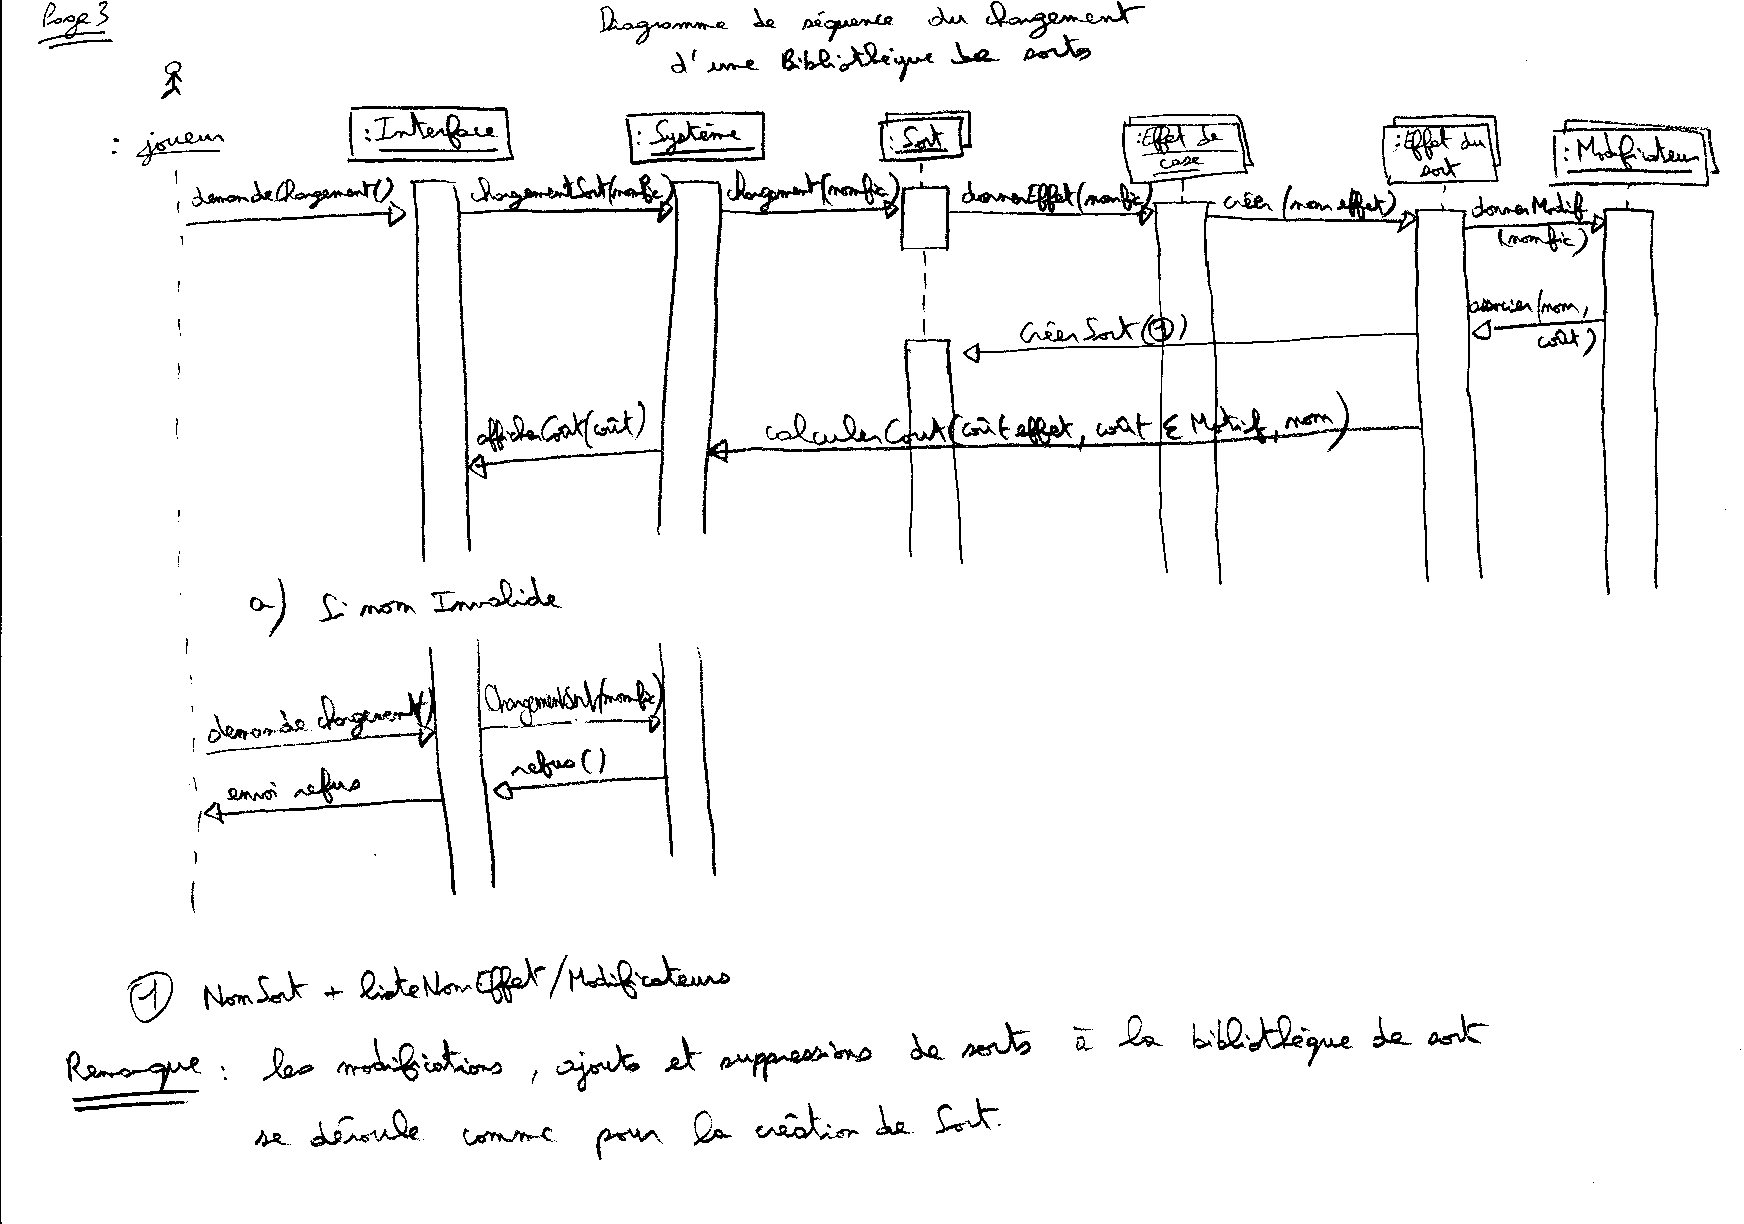 Page 3
Diagramme de séquence du chargement
d'une Bibliothèque de sorts
: joueur
: Interface
: Système
: Sort
: Effet de
case
: Effet du
sort
: Modificateur
demandeChargement()
chargementSort(nomfic)
chargement(nomfic)
donnerEffet(nomfic)
créer (nom effet)
donnerModif
(nomfic)
associer(nom,
coût)
CréerSort(1)
afficherCoût(coût)
calculerCout(coût effet, coût Σ Modif, nom)
a) Si nom Invalide
demande chargement()
ChargementSort(nomfic)
refus()
envoi refus
1 NomSort + listeNomEffet/Modificateurs
Remarque : les modifications, ajouts et suppressions de sorts à la bibliothèque de sort
se déroule comme pour la création de Sort.